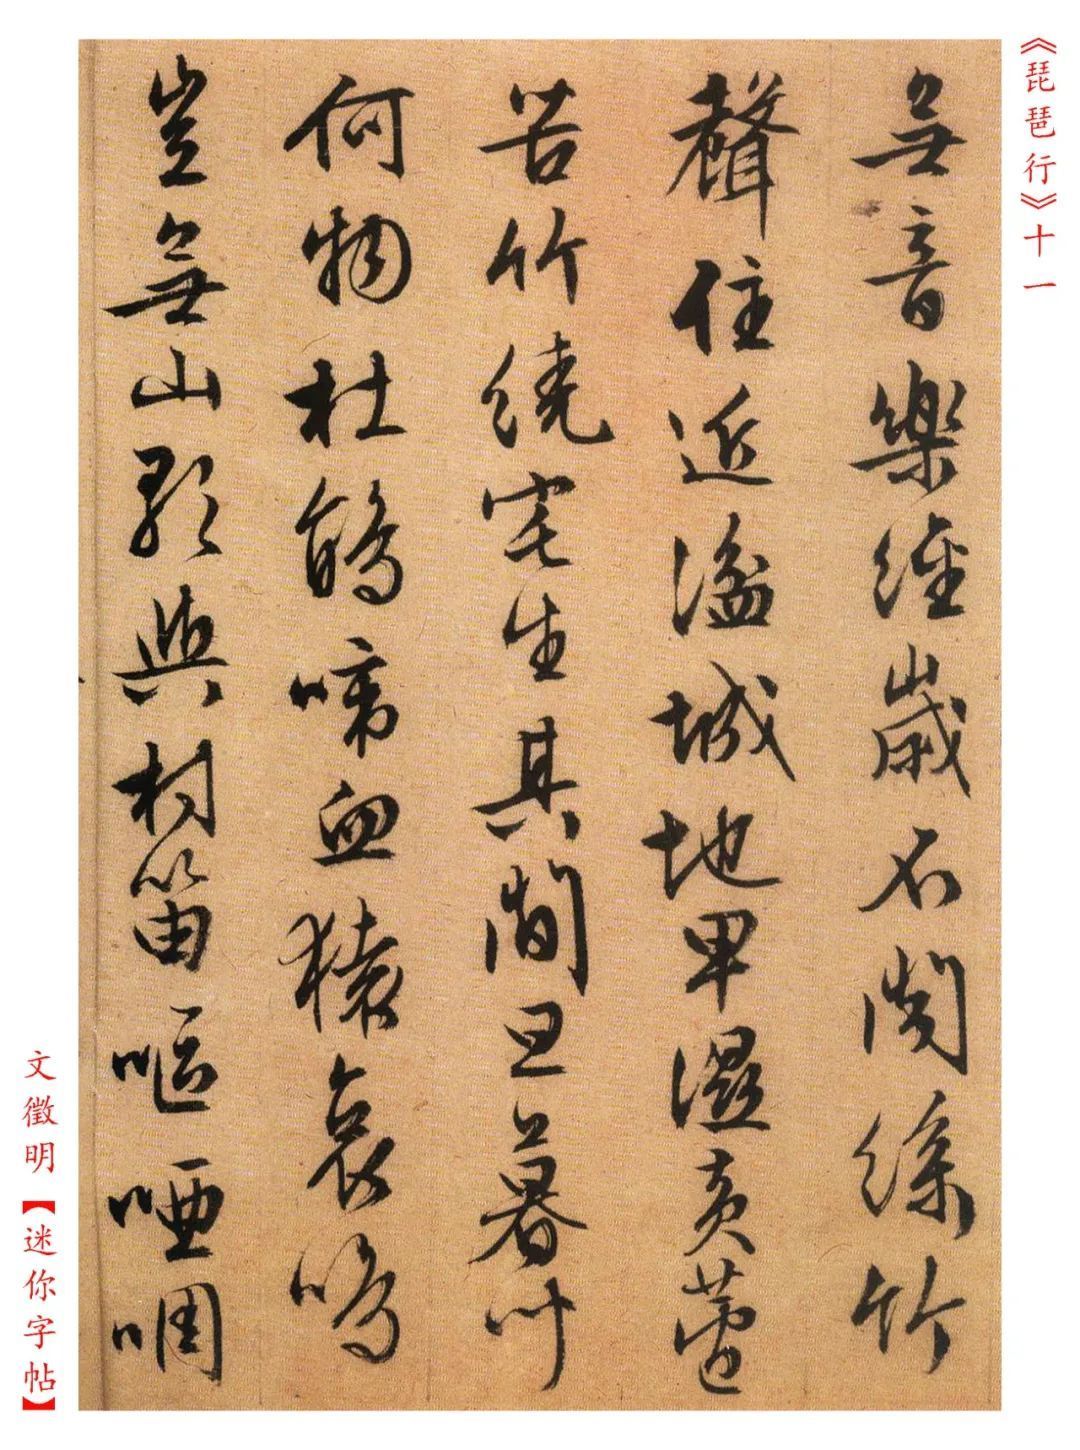 《琵琶行》十一
無音樂經歲不聞絲竹
聲住近湓城地卑濕黃蘆
苦竹繞宅生其間旦暮聞
何物杜鵑啼血猿哀鳴
豈無山歌與村笛嘔啞啁
文徵明【迷你字帖】